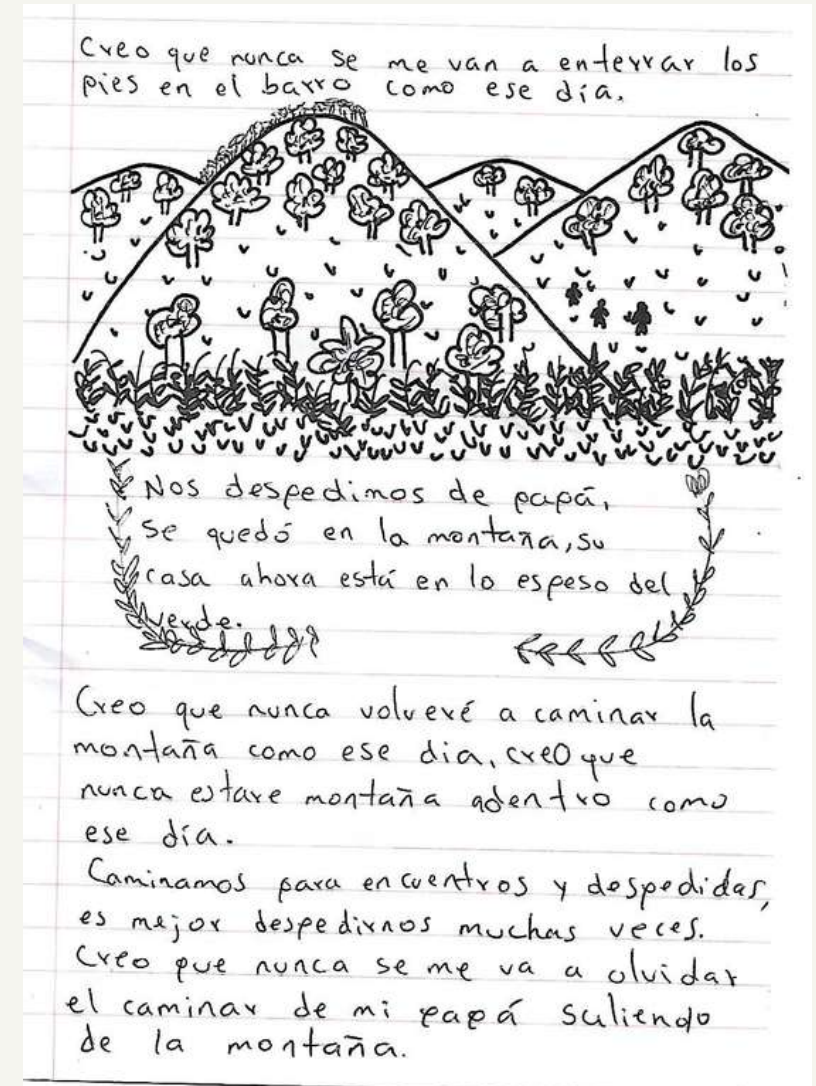 Creo que nunca se me van a enterrar los
pies en el barro como ese día.
Nos despedimos de papá,
se quedó en la montaña, su
casa ahora está en lo espeso del
verde.
Creo que nunca volveré a caminar la
montaña como ese dia, creo que
nunca estare montaña adentro como
ese día.
Caminamos para encuentros y despedidas,
es mejor despedirnos muchas veces.
Creo que nunca se me va a olvidar
el caminar de mi papá saliendo
de la montaña.